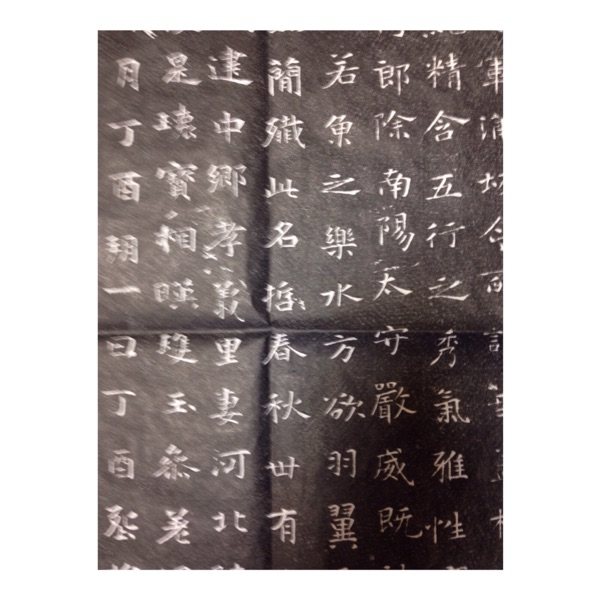 精含五行之秀氣雅性
郎除南陽太守嚴威既
若魚之樂水方欲羽翼
簡殲此名哲春秋卌有
建中鄉孝義里妻河北
是瓌寶相暎雙玉叅差
月丁酉朔一日丁酉